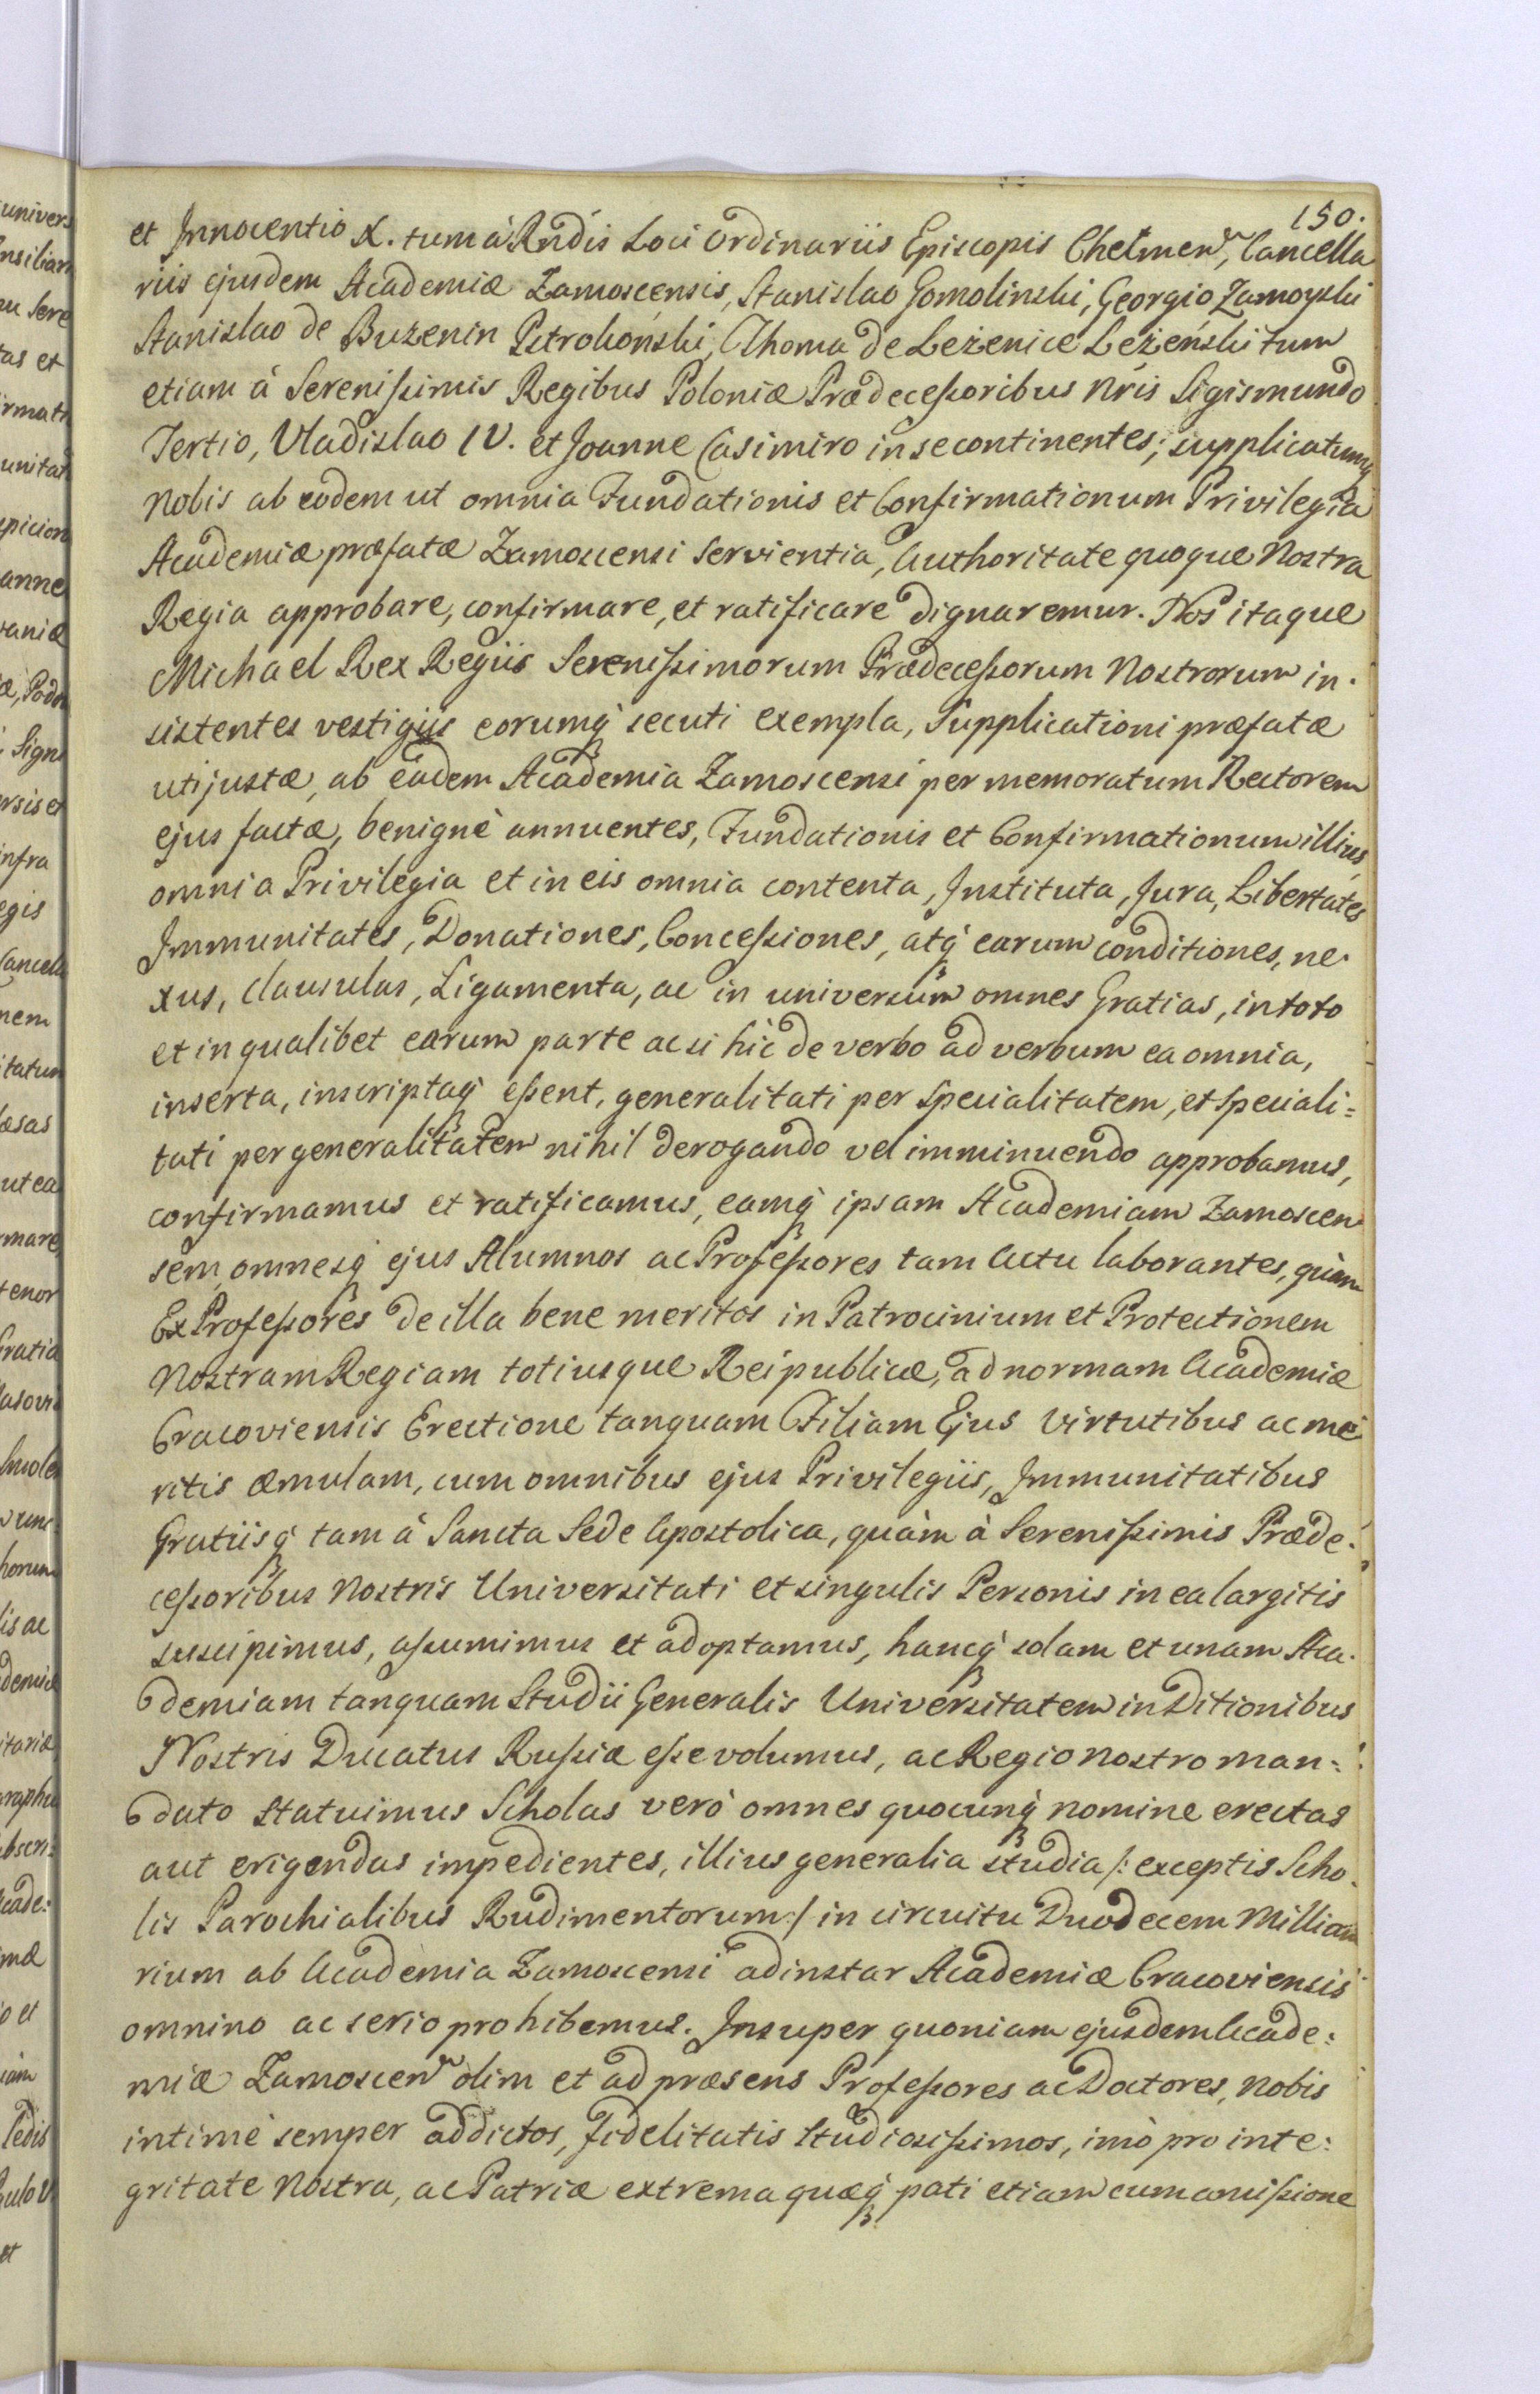 150.
et Innocentio X. tum à Rndis Loci Ordinariis Episcopis Chelmen, Cancella
riis ejusdem Academiæ Zamoscensis, Stanislao Gomolinski, Georgio Zamoyski
Stanislao de Buzenin Pstrokonski, Thoma de Leżenice Leżeński tum
etiam à Serenißimis Regibus Poloniæ Prædeceßoribus Nris Sigismundo
Tertio, Vladislao IV. et Joanne Casimiro in se continentes; supplicatumq
Nobis ab eodem ut omnia Fundationis et Confirmationum Privilegia
Academiæ præfatæ Zamoscensi Servientia, Authoritate quoque Nostra
Regia approbare, confirmare, et ratificare dignaremur. Nos itaque
Michael Rex Regiis Serenißimorum Prædeceßorum Nostrorum in.
sistentes vestigiis eorumq secuti exempla, Supplicationi præfatæ
uti justæ, ab eâdem Academia Zamoscensi per memoratum Rectorem
ejus factæ, benignè annuentes, Fundationis et Confirmationum illius,
omnia Privilegia et in eis omnia contenta, Instituta, Jura, Libertates
Immunitates, Donationes, Conceßiones, atq earum conditiones, ne.
xus, Clausulas, Ligamenta, ac in universum omnes Gratias, in toto
et in qualibet earum parte ac si hìc de verbo ad verbum ea omnia,
inserta, inscriptaq eßent, generalitati per specialitatem, et speciali=
tati per generalitatem nihil derogando vel imminuendo approbamus,
confirmamus et ratificamus, eamq ipsam Academiam Zamoscen
sem, omnesq ejus Alumnos ac Profeßores tam Actu laborantes, quàm
Ex Profeßores de illa bene meritos in Patrocinium et Protectionem
Nostram Regiam totiusque Reipublicæ, ad normam Academiæ
Cracoviensis Erectione tanquam Filiam Ejus Virtutibus ac me
ritis æmulam, cum omnibus ejus Privilegiis, Immunitatibus
Gratiisq tam à Sancta Sede Apostolica, quàm à Serenißimis Præde.
ceßoribus Nostris Universitati et singulis Personis in ea largitis
suscipimus, aßumimus et adoptamus, hancq solam et unam Aca.
demiam tanquam Studii Generalis Universitatem in Ditionibus
Nostris Ducatus Rußiæ eße volumus, ac Regio nostro man=
dato statuimus Scholas verò omnes quocunq nomine erectas
aut erigendas impedientes, illius generalia studia /: exceptis Scho.
lis Parochialibus Rudimentorum :/ in circuitu Duodecem Millia
rium ab Academia Zamoscensi ad instar Academiæ Cracoviensis
omnino ac serio prohibemus. Insuper quoniam ejusdem Acade:
miæ Zamoscen olim et ad præsens Profeßores ac Doctores, Nobis
intimè semper addictos, fidelitatis Studiosißimos, imò pro inte:
gritate Nostra, ac Patriæ extrema quæq pati etiam cum amißione